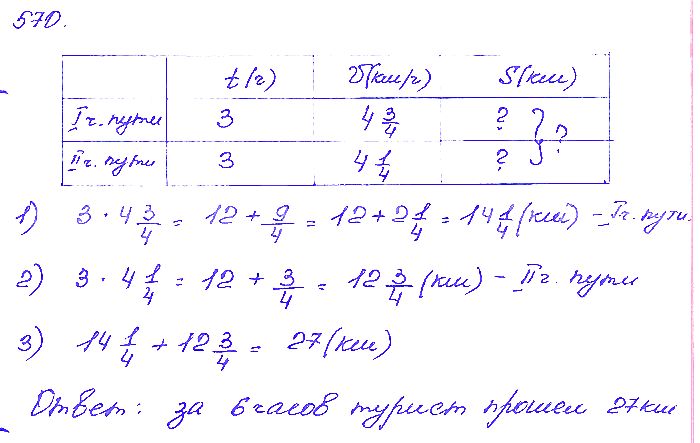 570.
t(ч) V(км/ч) S(км)
I ч. пути 3 4 3/4 ? } ?
II ч. пути 3 4 1/4 ?
1) 3 · 4 3/4 = 12 + 9/4 = 12 + 2 1/4 = 14 1/4 (км) – I ч. пути.
2) 3 · 4 1/4 = 12 + 3/4 = 12 3/4 (км) – II ч. пути
3) 14 1/4 + 12 3/4 = 27 (км)
Ответ: за 6 часов турист прошел 27 км